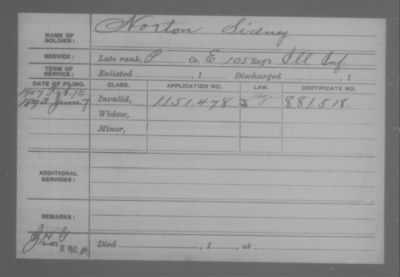 NAME OF SOLDIER: Norton Sidney
SERVICE: Late rank, P Co. E, 105 Reg't Ill Inf.
TERM OF SERVICE: Enlisted , 1 Discharged , 1
DATE OF FILING. CLASS. APPLICATION NO. LAW. CERTIFICATE NO.
Invalid, 1151.478 881518.
June 7
Widow,
Minor,
ADDITIONAL SERVICES:
REMARKS:
Died , 1 , at